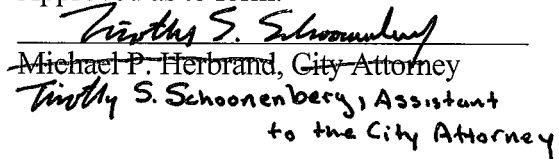 Approved as to form:
Timothy S. Schoonenberg
Michael P. Herbrand, City Attorney
Timothy S. Schoonenberg, Assistant
to the City Attorney